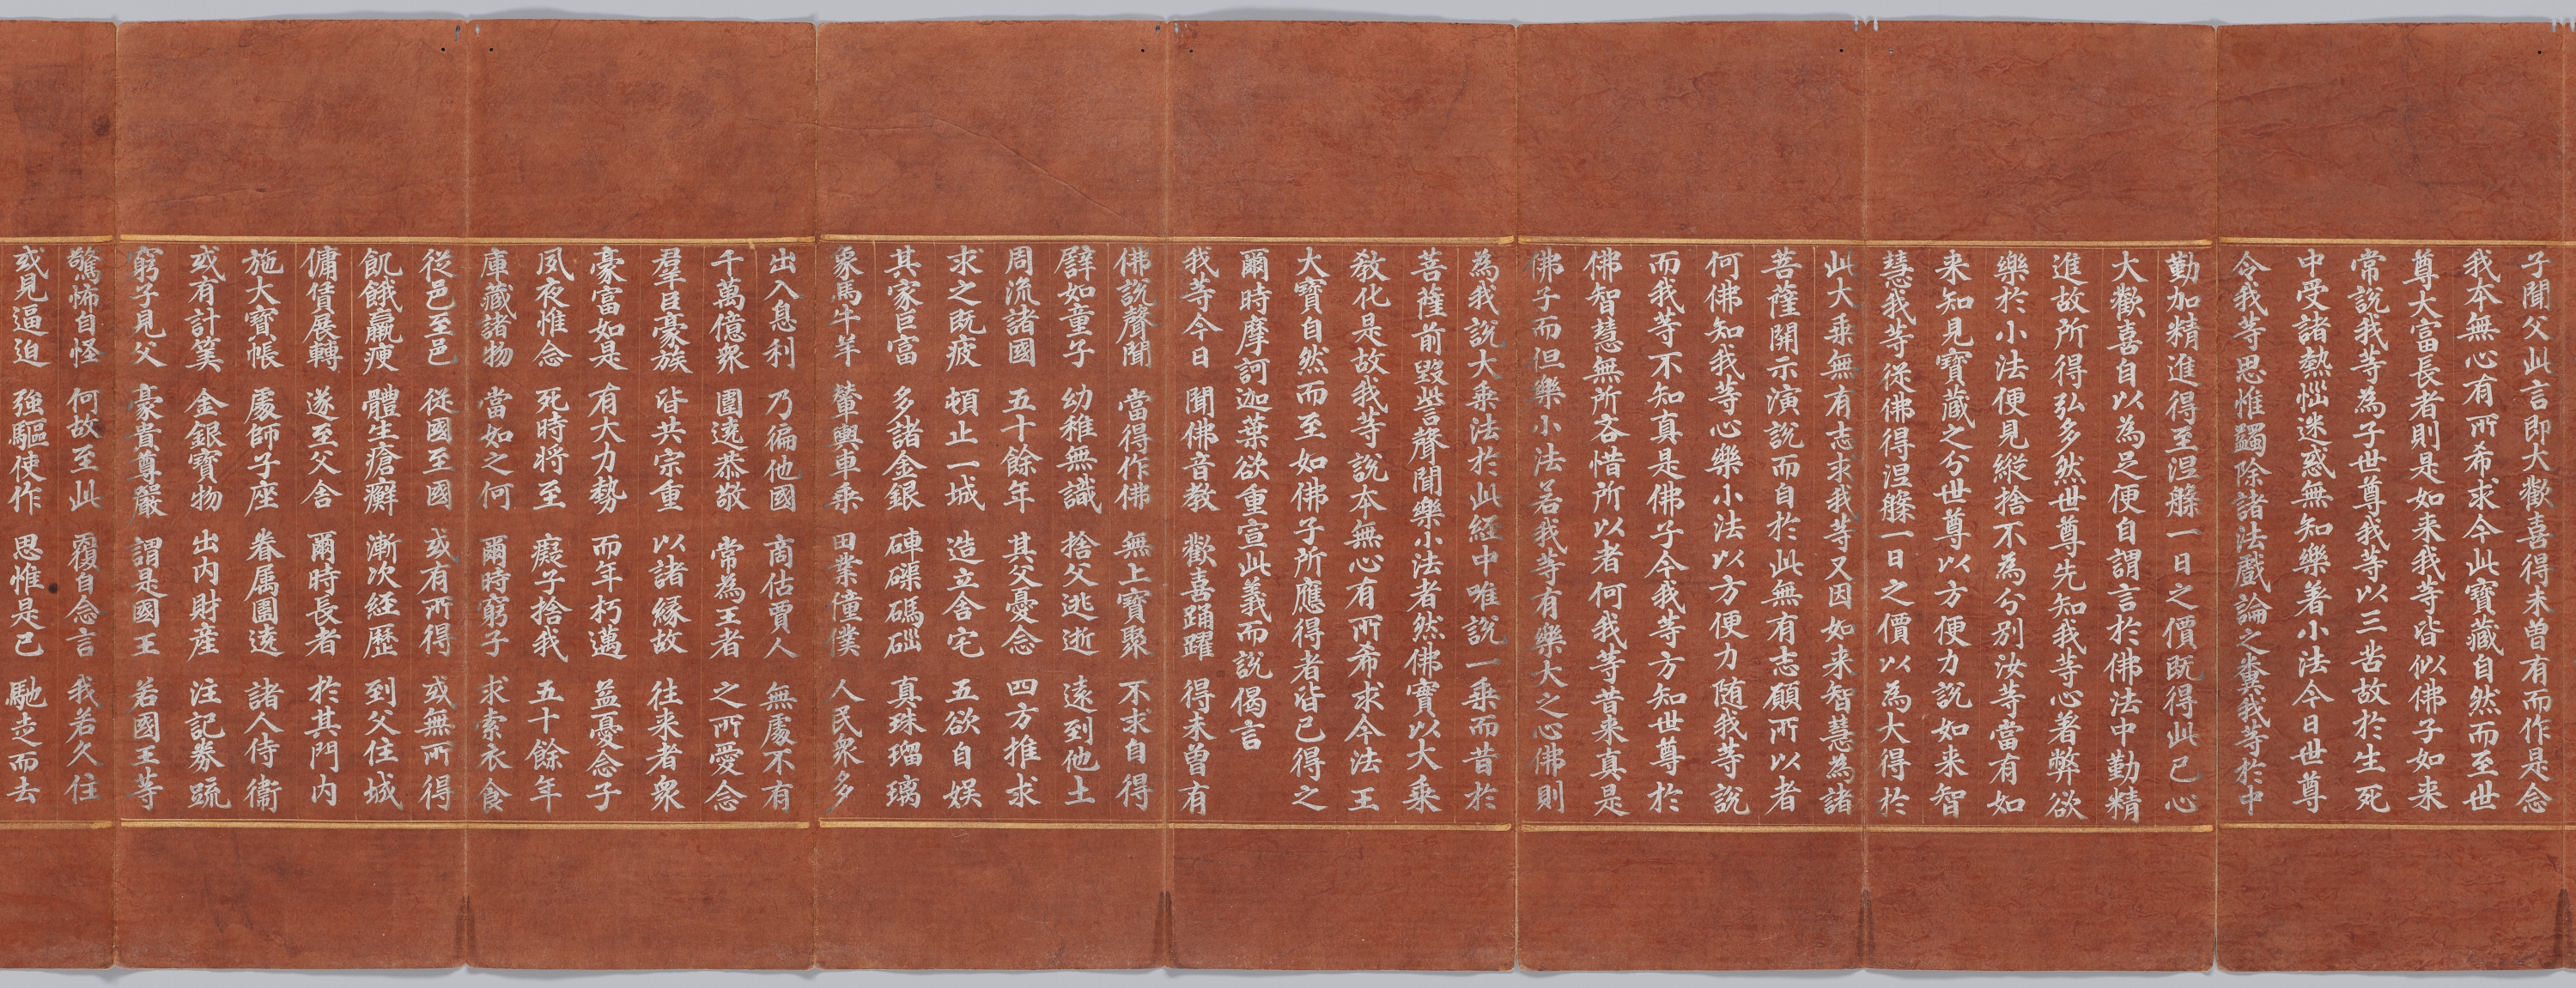 子聞父此言即大歡喜得未曽有而作是念
我本無心有所希求今此寶藏自然而至世
尊大富長者則是如来我等皆似佛子如来
常說我等為子世尊我等以三苦故於生死
中受諸熱惱迷惑無知樂著小法今日世尊
令我等思惟蠲除諸法戲論之糞我等於中
勤加精進得至涅槃一日之價既得此已心
大歡喜自以為足便自謂言於佛法中勤精
進故所得弘多然世尊先知我等心著弊欲
樂於小法便見縱捨不為分別汝等當有如
来知見寶藏之分世尊以方便力說如来智
慧我等從佛得涅槃一日之價以為大得於
此大乘無有志求我等又因如来智慧為諸
菩薩開示演說而自於此無有志願所以者
何佛知我等心樂小法以方便力随我等說
而我等不知真是佛子今我等方知世尊於
佛智慧無所吝惜所以者何我等昔来真是
佛子而但樂小法若我等有樂大之心佛則
為我說大乘法於此經中唯說一乘而昔於
菩薩前毀訾聲聞樂小法者然佛實以大乘
教化是故我等說本無心有所希求今法王
大寶自然而至如佛子所應得者皆已得之
爾時摩訶迦葉欲重宣此義而說偈言
我等今日 聞佛音教 歡喜踊躍 得未曽有
佛說聲聞 當得作佛 無上寶聚 不求自得
譬如童子 幼稚無識 捨父逃逝 遠到他土
周流諸國 五十餘年 其父憂念 四方推求
求之既疲 頓止一城 造立舍宅 五欲自娛
其家巨富 多諸金銀 硨磲碼碯 真珠瑠璃
象馬牛羊 輦輿車乘 田業僮僕 人民衆多
出入息利 乃徧他國 商估賈人 無處不有
千萬億衆 圍遶恭敬 常為王者 之所愛念
羣臣豪族 皆共宗重 以諸縁故 往来者衆
豪富如是 有大力勢 而年朽邁 益憂念子
夙夜惟念 死時将至 癡子捨我 五十餘年
庫藏諸物 當如之何 爾時窮子 求索衣食
從邑至邑 從國至國 或有所得 或無所得
飢餓羸瘦 體生瘡癬 漸次經歷 到父住城
傭賃展轉 遂至父舍 爾時長者 於其門内
施大寶帳 處師子座 眷属圍遶 諸人侍衞
或有計筭 金銀寶物 出内財産 注記券疏
窮子見父 豪貴尊嚴 謂是國王 若國王等
驚怖自怪 何故至此 覆自念言 我若久住
或見逼迫 強驅使作 思惟是已 馳走而去